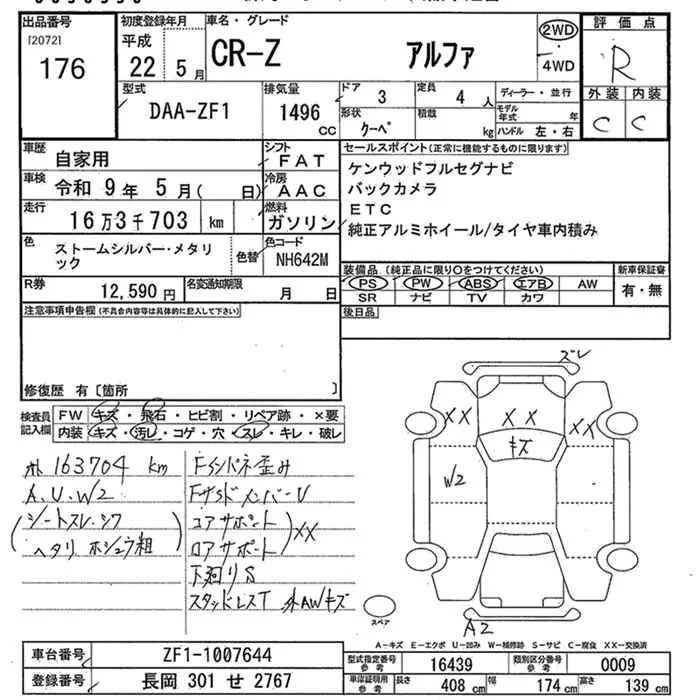 出品番号
[2072]
176
初度登録年月
平成
22 5月
車名・グレード
CR-Z アルファ
2WD
4WD
評価点
R
外装 内装
C C
型式
DAA-ZF1
排気量
1496 CC
ドア 3
形状 クーペ
定員 4 人
積載 kg
ディーラー・並行
モデル年式 年
ハンドル 左・右
車歴
自家用
シフト
FAT
車検
令和 9年 5月( 日)
冷房
AAC
走行
16万3千703 km
燃料
ガソリン
色
ストームシルバー・メタリ
ック
色替
色コード
NH642M
セールスポイント(正常に機能するものに限ります)
ケンウッドフルセグナビ
バックカメラ
ETC
純正アルミホイール/タイヤ車内積み
R券
12,590 円
名変通知期限
月 日
装備品(純正品に限り○をつけてください)
PS PW ABS エアB AW
SR ナビ TV カワ
新車保証書
有・無
注意事項申告欄(不具合内容等は具体的に記入して下さい)
後日品
修復歴 有〔箇所 〕
検査員
記入欄
FW キズ・飛石・ヒビ割・リペア跡・×要
内装 キズ・汚レ・コゲ・穴・スレ・キレ・破レ
163704 km
A、U、W2
シートスレ・シワ
ヘタリ ホシュウ粗
Fインパネ歪み
FサイドメンバーU
コアサポート
ロアサポート
XX
下廻りS
スタッドレスT 外AWキズ
ズレ
XX
XX
XX
キズ
W2
A2
スペア
A-キズ E-エクボ U-凹み W-補修跡 S-サビ C-腐食 XX-交換済
車台番号
ZF1-1007644
登録番号
長岡 301 せ 2767
型式指定番号
参考
16439
類別区分番号
参考
0009
車庫証明用
参考
長さ 408 cm
幅 174 cm
高さ 139 cm